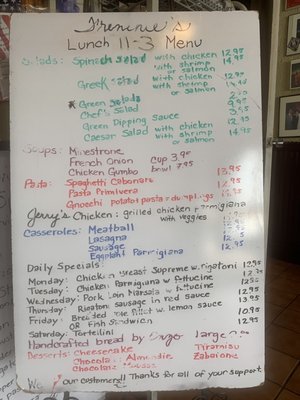 Lunch 11-3 Menu
Salads: Spinach Salad with chicken 12.95
with shrimp 14.95
or salmon
Greek Salad with chicken 12.95
with shrimp
or salmon
* Green Salads
Chef's Salad
Green Dipping Sauce
Caesar Salad with chicken 12.95
with shrimp 14.95
or salmon
Soups: Minestrone
French Onion cup 3.95
Chicken Gumbo bowl 7.95
Pasta: Spaghetti Carbonara 13.95
Pasta Primivera
Gnocchi potato pasta dumplings
Jerry's Chicken: grilled chicken parmigiana
with veggies
Casseroles: Meatball
Lasagna
Sausage
Eggplant Parmigiana
Daily Specials:
Monday: Chicken Breast Supreme w. rigatoni 12.95
Tuesday: Chicken Parmigiana w fettucine
Wednesday: Pork Loin Marsala w fettucine 12.95
Thursday: Rigatoni sausage in red sauce 13.95
Friday: Breaded sole fillet w. lemon sauce
OR Fish Sandwich 10.95
Saturday: Tortellini 12.95
Handcrafted bread by large
Desserts: Cheesecake Tiramisu
Chocolate Zabaione
Chocolate Mousse
We our customers!! Thanks for all of your support